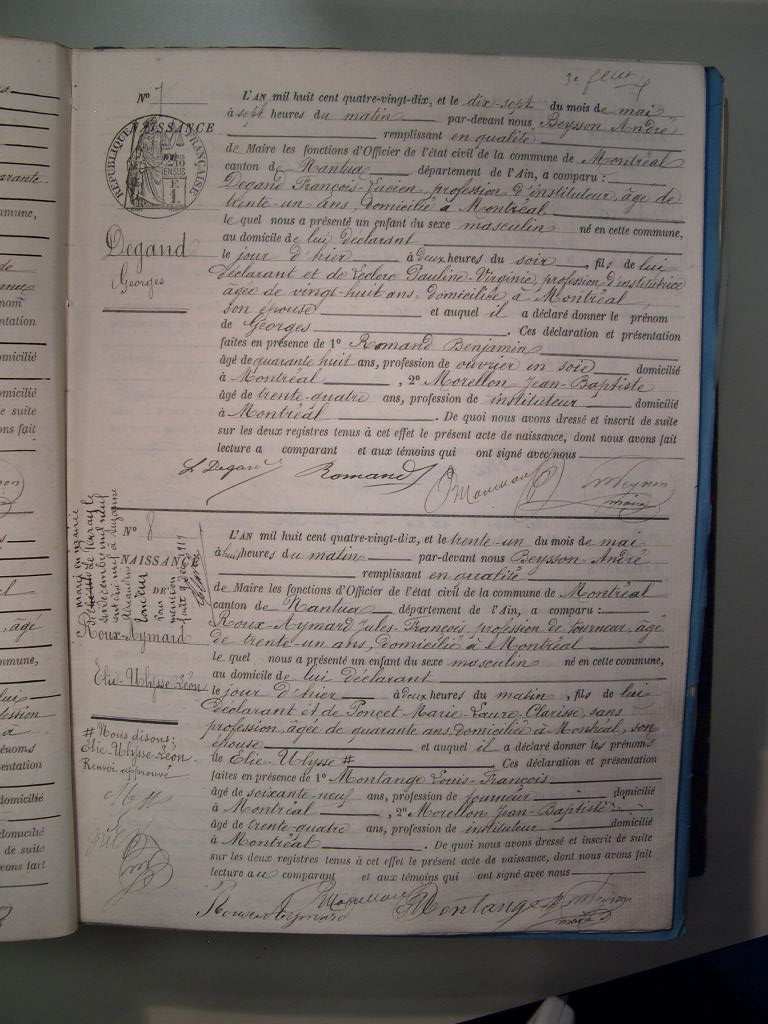 3e feuillet
No 7
NAISSANCE
RÉPUBLIQUE FRANÇAISE
Degand
Georges
L'AN mil huit cent quatre-vingt-dix, et le dix-sept du mois de mai
à sept heures du matin par-devant nous Beysson André
remplissant en qualité
de Maire les fonctions d'Officier de l'état civil de la commune de Montréal
canton de Nantua département de l'Ain, a comparu :
Degand François-Lucien, profession d'instituteur, âgé de
trente-un ans, domicilié à Montréal
le quel nous a présenté un enfant du sexe masculin né en cette commune,
au domicile de lui déclarant
le jour d'hier à deux heures du soir, fils de lui
déclarant et de Leclerc Pauline-Virginie, profession d'institutrice
âgée de vingt-huit ans, domiciliée à Montréal
son épouse et auquel il a déclaré donner le prénom
de Georges. Ces déclaration et présentation
faites en présence de 1o Romand Benjamin
âgé de quarante huit ans, profession de ouvrier en soie domicilié
à Montréal, 2o Morellon Jean-Baptiste
âgé de trente-quatre ans, profession de instituteur domicilié
à Montréal. De quoi nous avons dressé et inscrit de suite
sur les deux registres tenus à cet effet le présent acte de naissance, dont nous avons fait
lecture a comparant et aux témoins qui ont signé avec nous
L Degand Romand
No 8
NAISSANCE
DE
Roux-Aymard
Elie-Ulysse-Léon
# Nous disons:
Elie-Ulysse-Léon
Renvoi approuvé
L'AN mil huit cent quatre-vingt-dix, et le trente-un du mois de mai
à huit heures du matin par-devant nous Beysson André
remplissant en qualité
de Maire les fonctions d'Officier de l'état civil de la commune de Montréal
canton de Nantua département de l'Ain, a comparu :
Roux-Aymard Jules-François, profession de tourneur, âgé
de trente-un ans, domicilié à Montréal
le quel nous a présenté un enfant du sexe masculin né en cette commune,
au domicile de lui déclarant
le jour d'hier à deux heures du matin, fils de lui
déclarant et de Poncet Marie Laure Clarisse, sans
profession, âgée de quarante ans, domiciliée à Montréal, son
épouse et auquel il a déclaré donner les prénoms
de Elie-Ulysse #. Ces déclaration et présentation
faites en présence de 1o Montange Louis-François
âgé de soixante-neuf ans, profession de tourneur domicilié
à Montréal, 2o Morellon Jean-Baptiste
âgé de trente-quatre ans, profession de instituteur domicilié
à Montréal. De quoi nous avons dressé et inscrit de suite
sur les deux registres tenus à cet effet le présent acte de naissance, dont nous avons fait
lecture au comparant et aux témoins qui ont signé avec nous
Roux-Aymard Montange